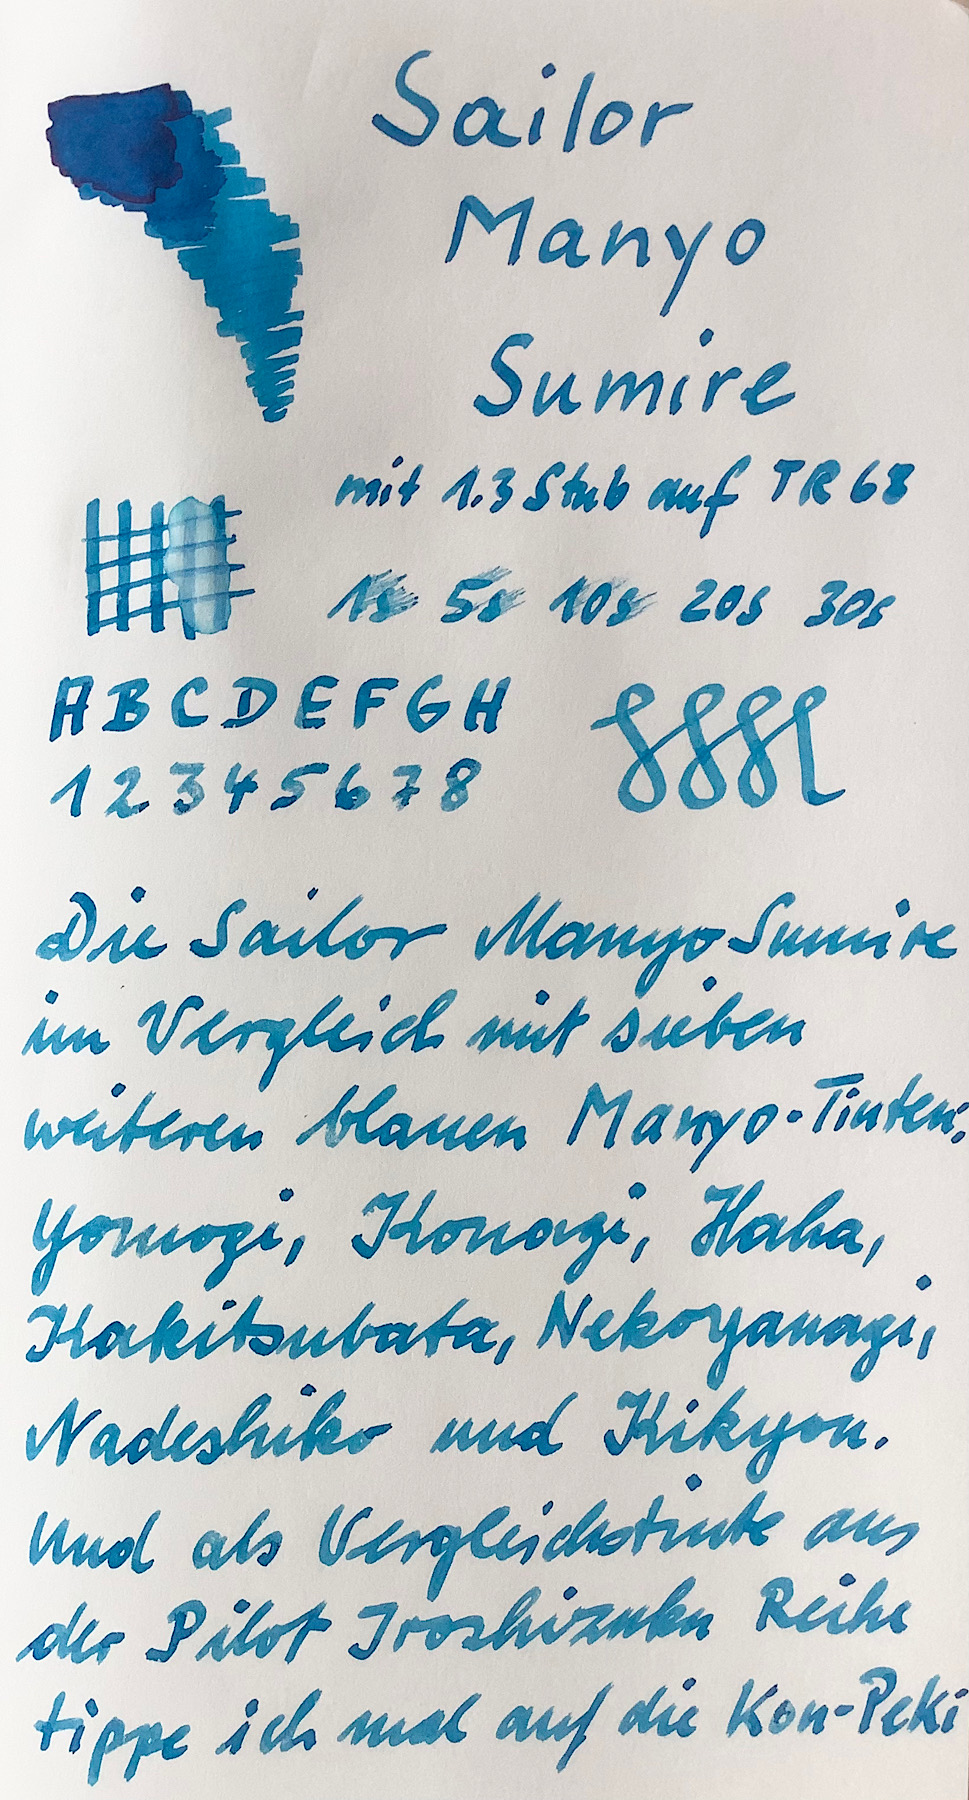 Sailor
Manyo
Sumire
mit 1.3 Stub auf TR68
1s 5s 10s 20s 30s
A B C D E F G H
1 2 3 4 5 6 7 8
Die Sailor Manyo Sumire
im Vergleich mit sieben
weiteren blauen Manyo-Tinten:
Yomogi, Konagi, Haha,
Kakitsubata, Nekoyanagi,
Nadeshiko und Kikyou.
Und als Vergleichstinte aus
der Pilot Iroshizuku Reihe
tippe ich mal auf die Kon-Peki